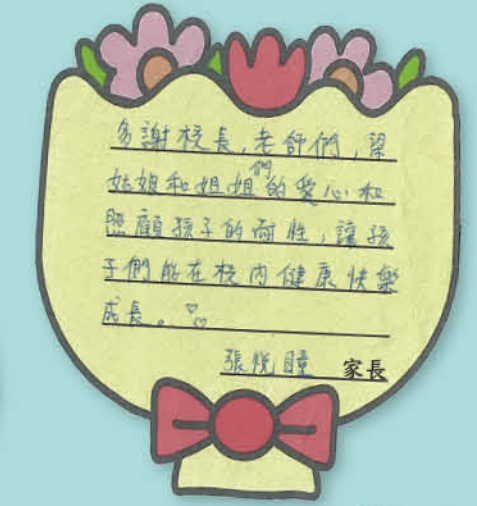 多謝校長,老師們,梁
姑娘和姐姐們的愛心和
照顧孩子的耐性,讓孩
子們能在校內健康快樂
成長。♡♡
張悅瞳 家長